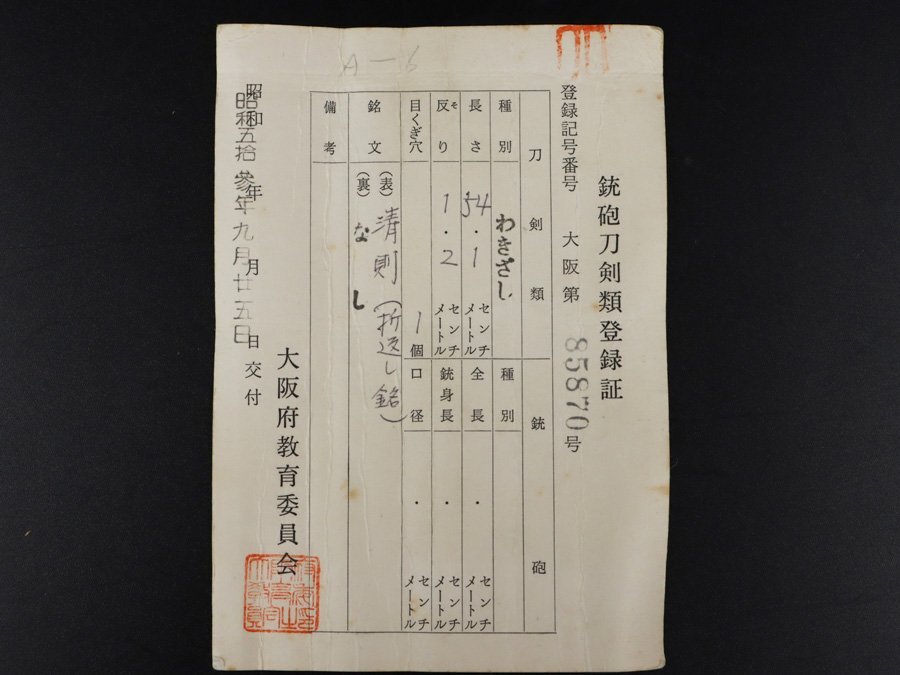 A-6
銃砲刀剣類登録証
登録記号番号 大阪第 85870 号
刀剣類
銃砲
種別 わきざし
種別
長さ 54.1 センチメートル
全長 ・ センチメートル
反り 1.2 センチメートル
そ
銃身長 ・ センチメートル
目くぎ穴 1個
口径 ・ センチメートル
銘文 (表) 清則(折返し銘)
(裏) なし
備考
昭和 年 月 日交付
昭和五拾参年九月廿五日
大阪府教育委員会